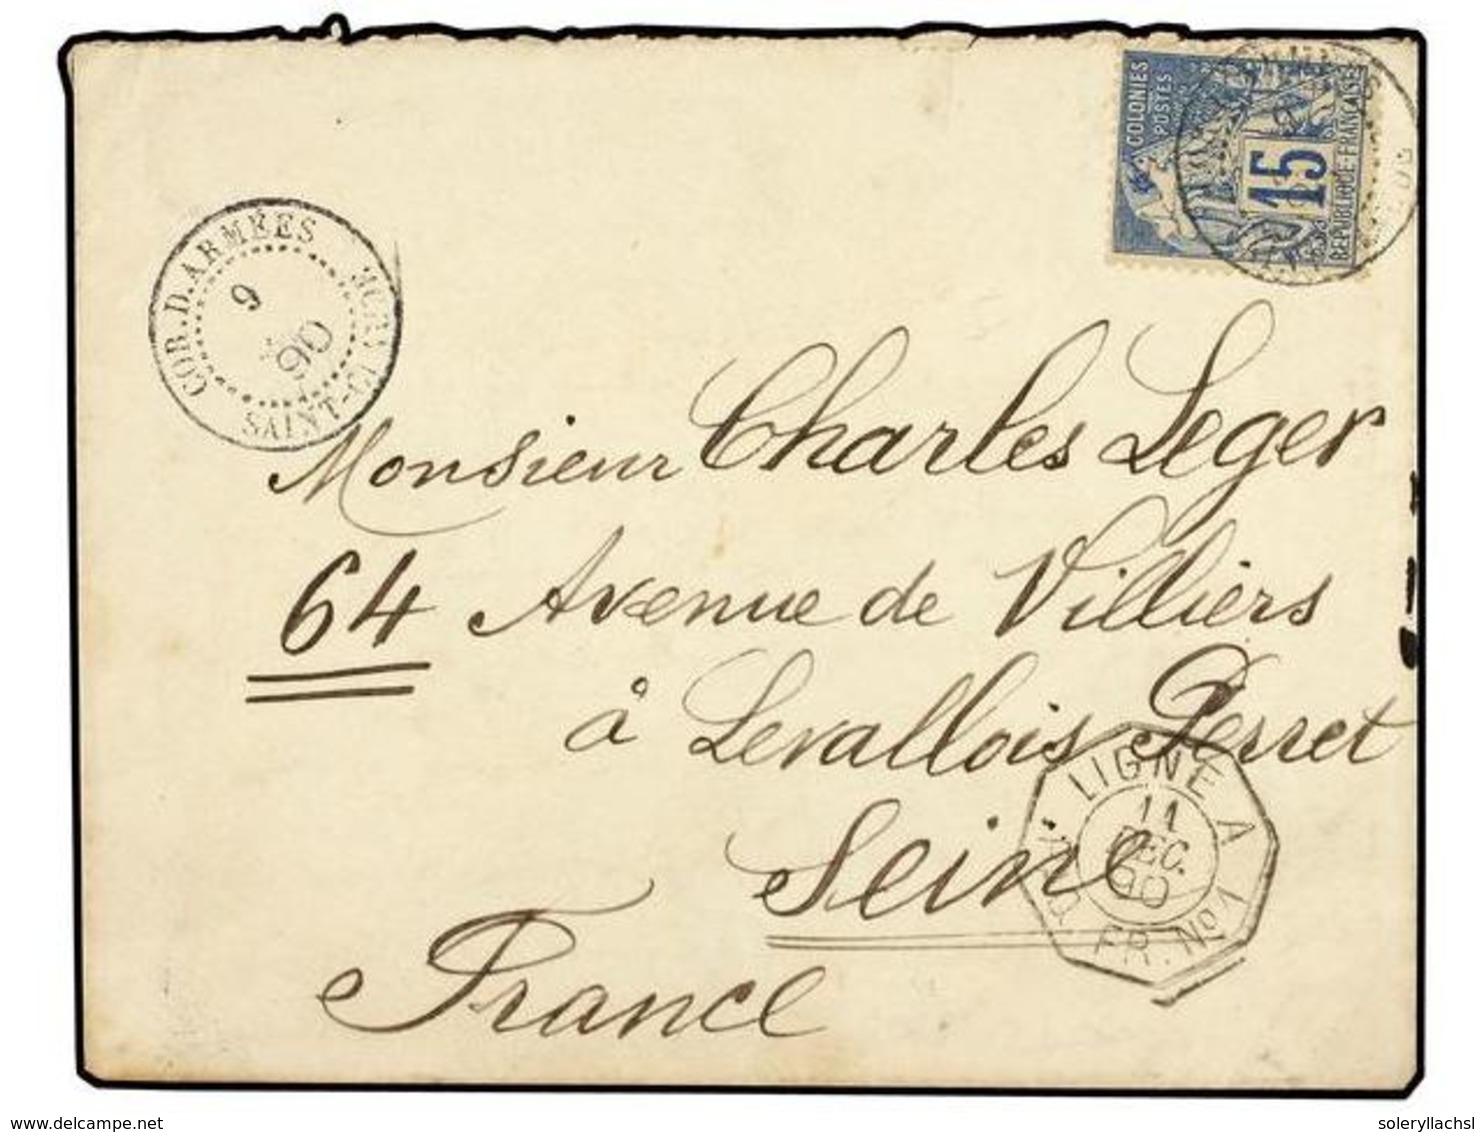 COLONIES
POSTES
15
REPUBLIQUE FRANÇAISE
COR. D. ARMÉES
9
90
SAINT-
Monsieur Charles Leger
64 Avenue de Villiers
à Levallois Perret
Seine
France
LIGNE A
11
DEC.
90
FR. Nº 1
www.delcampe.net
soleryllachsl